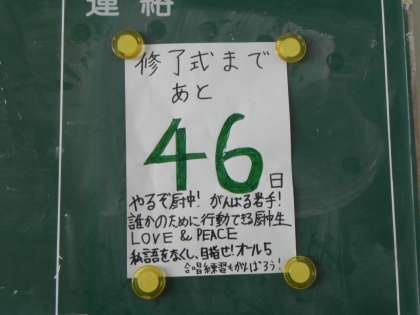 連絡
修了式まで
あと
46日
やるぞ厨中! がんばる岩手!
誰かのために行動できる厨中生
LOVE & PEACE
私語をなくし、目指せ!オール5
合唱練習もがんばろう!